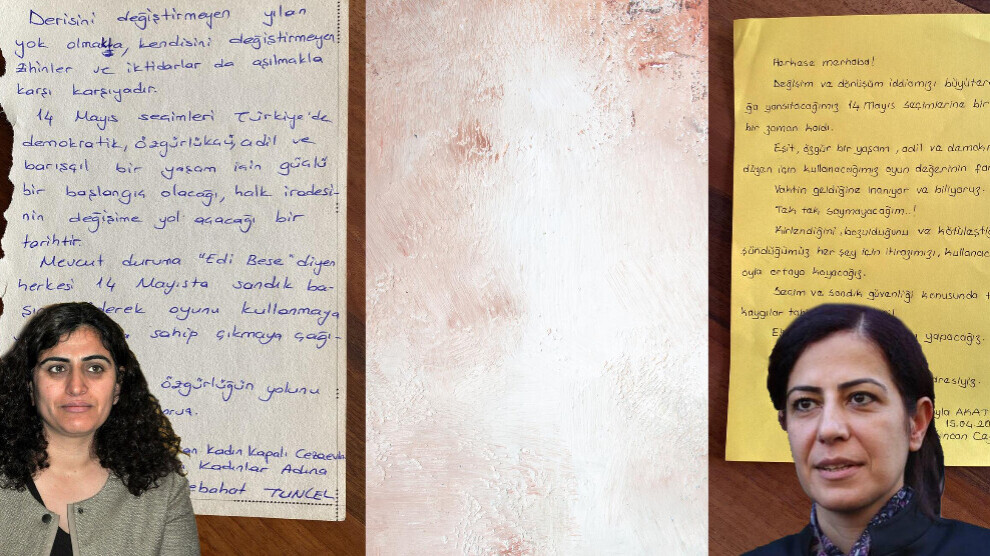 Derisini değiştirmeyen yılan
yok olmakta, kendisini değiştirmeyen
zihinler ve iktidarlar da aşılmakla
karşı karşıyadır.
14 Mayıs seçimleri Türkiye'de
demokratik, özgürlükçü, adil ve
barışçıl bir yaşam için güçlü
bir başlangıç olacağı, halk iradesi-
nin değişime yol açacağı bir
tarihtir.
Mevcut duruma "Edi Bese" diyen
herkesi 14 Mayısta sandık ba-
derek oyunu kullanmaya
sahip çıkmaya çağı-
özgürlüğün yolunu
Kadın Kapalı Cezaevi
Kadınlar Adına
ebahat TUNCEL
Herkese merhaba!
Değişim ve dönüşüm iddiamızı büyüter
ğa yansıtacağımız 14 Mayıs seçimlerine bir
bir zaman kaldı.
Eşit, özgür bir yaşam, adil ve demok
düzen için kullanacağımız oyun değerinin far
Vaktin geldiğine inanıyor ve biliyoruz.
Tek tek saymayacağım..!
Kirlendiğini, bozulduğunu ve kötüleştiğ
şündüğümüz her şey için itirazımızı, kullanac
oyla ortaya koyacağız.
Seçim ve sandık güvenliği konusunda t
kaygılar
yapacağız.
resiyiz.
yla AKAT
15.04.20
incan Ca